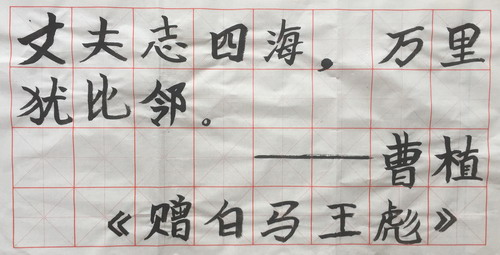 丈夫志四海，万里
犹比邻。
——曹植
《赠白马王彪》